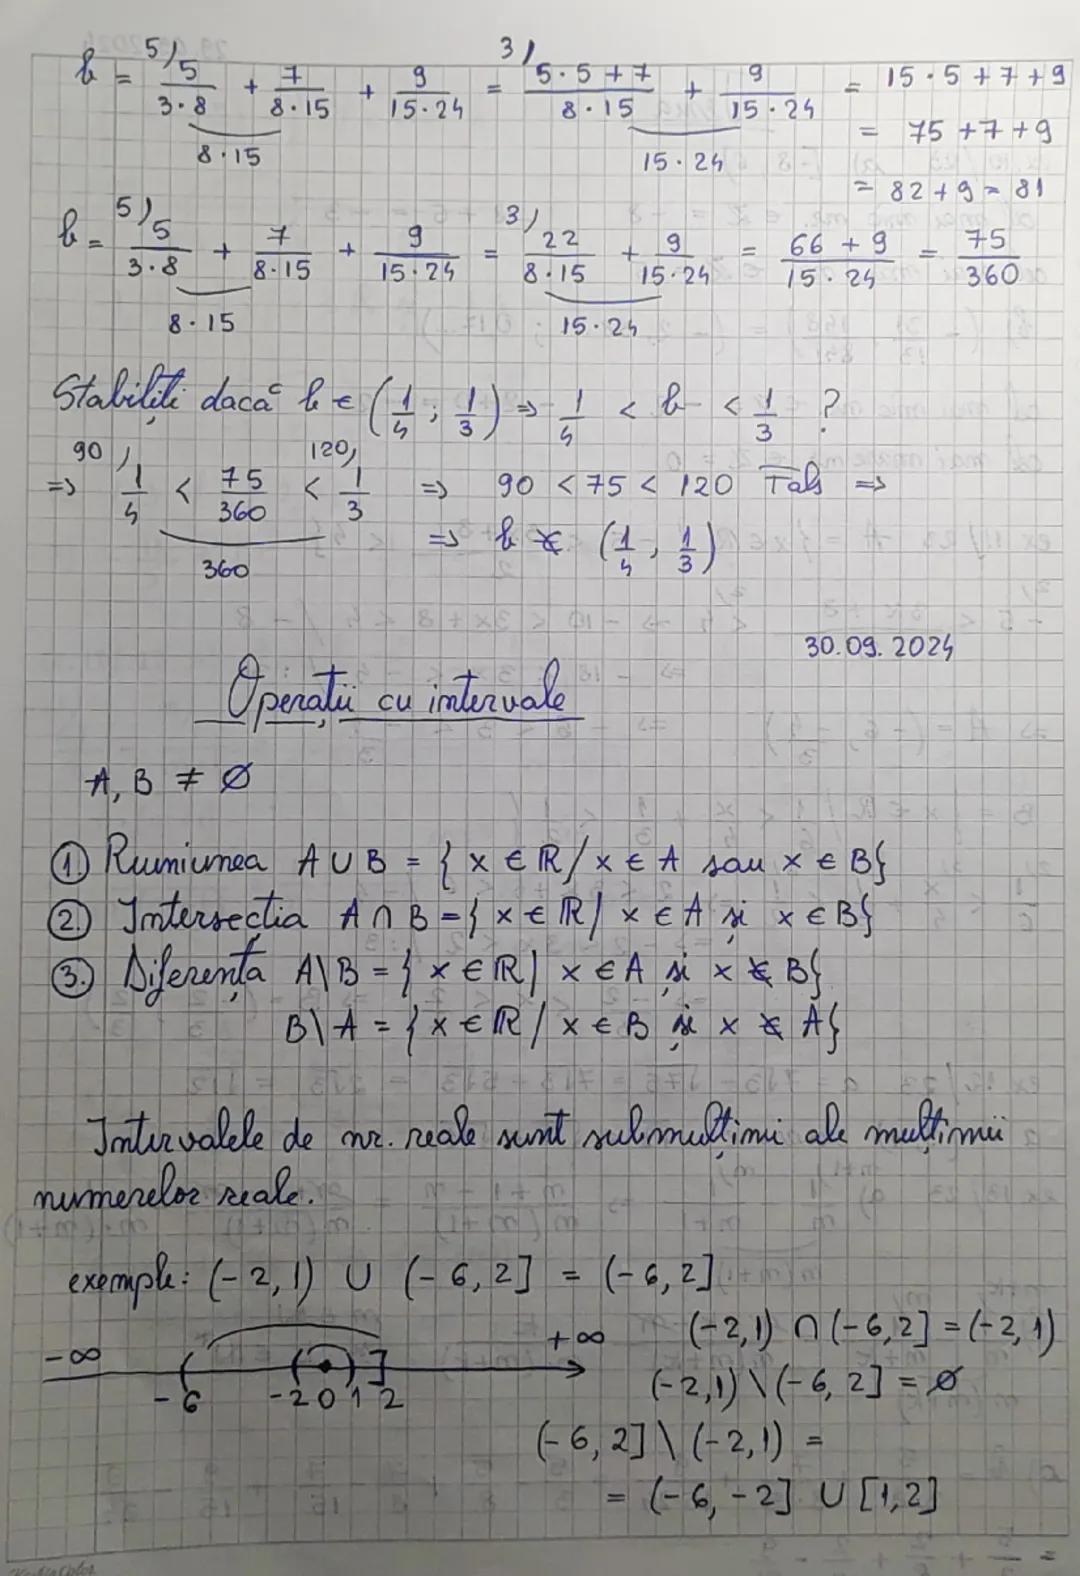 b = 5) 5/(3·8) + 7/(8·15) + 9/(15·24) = 3) (5·5+7)/(8·15) + 9/(15·24) = 15·5+7+9
8·15 15·24 = 75+7+9
= 82+9=81
b = 5) 5/(3·8) + 7/(8·15) + 9/(15·24) = 3) 22/(8·15) + 9/(15·24) = (66+9)/(15·24) = 75/360
8·15 15·24
Stabiliți dacă b ∈ (1/4; 1/3) => 1/4 < b < 1/3 ?
=> 90) 1/4 < 75/360 < 120) 1/3 => 90 < 75 < 120 Fals =>
360 => b ∉ (1/4, 1/3)
30.09.2024
Operații cu intervale
A, B ≠ ∅
1. Runiunea A ∪ B = { x ∈ ℝ / x ∈ A sau x ∈ B}
2. Intersecția A ∩ B = { x ∈ ℝ / x ∈ A și x ∈ B}
3. Diferența A\B = { x ∈ ℝ / x ∈ A și x ∉ B}
B\A = { x ∈ ℝ / x ∈ B și x ∉ A}
Intervalele de nr. reale sunt submulțimi ale mulțimii
numerelor reale.
exemple: (-2, 1) ∪ (-6, 2] = (-6, 2]
(-2,1) ∩ (-6,2] = (-2,1)
-∞ +∞
-6 -2 0 1 2
(-2,1) \ (-6, 2] = ∅
(-6, 2] \ (-2,1) =
= (-6, -2] ∪ [1,2]